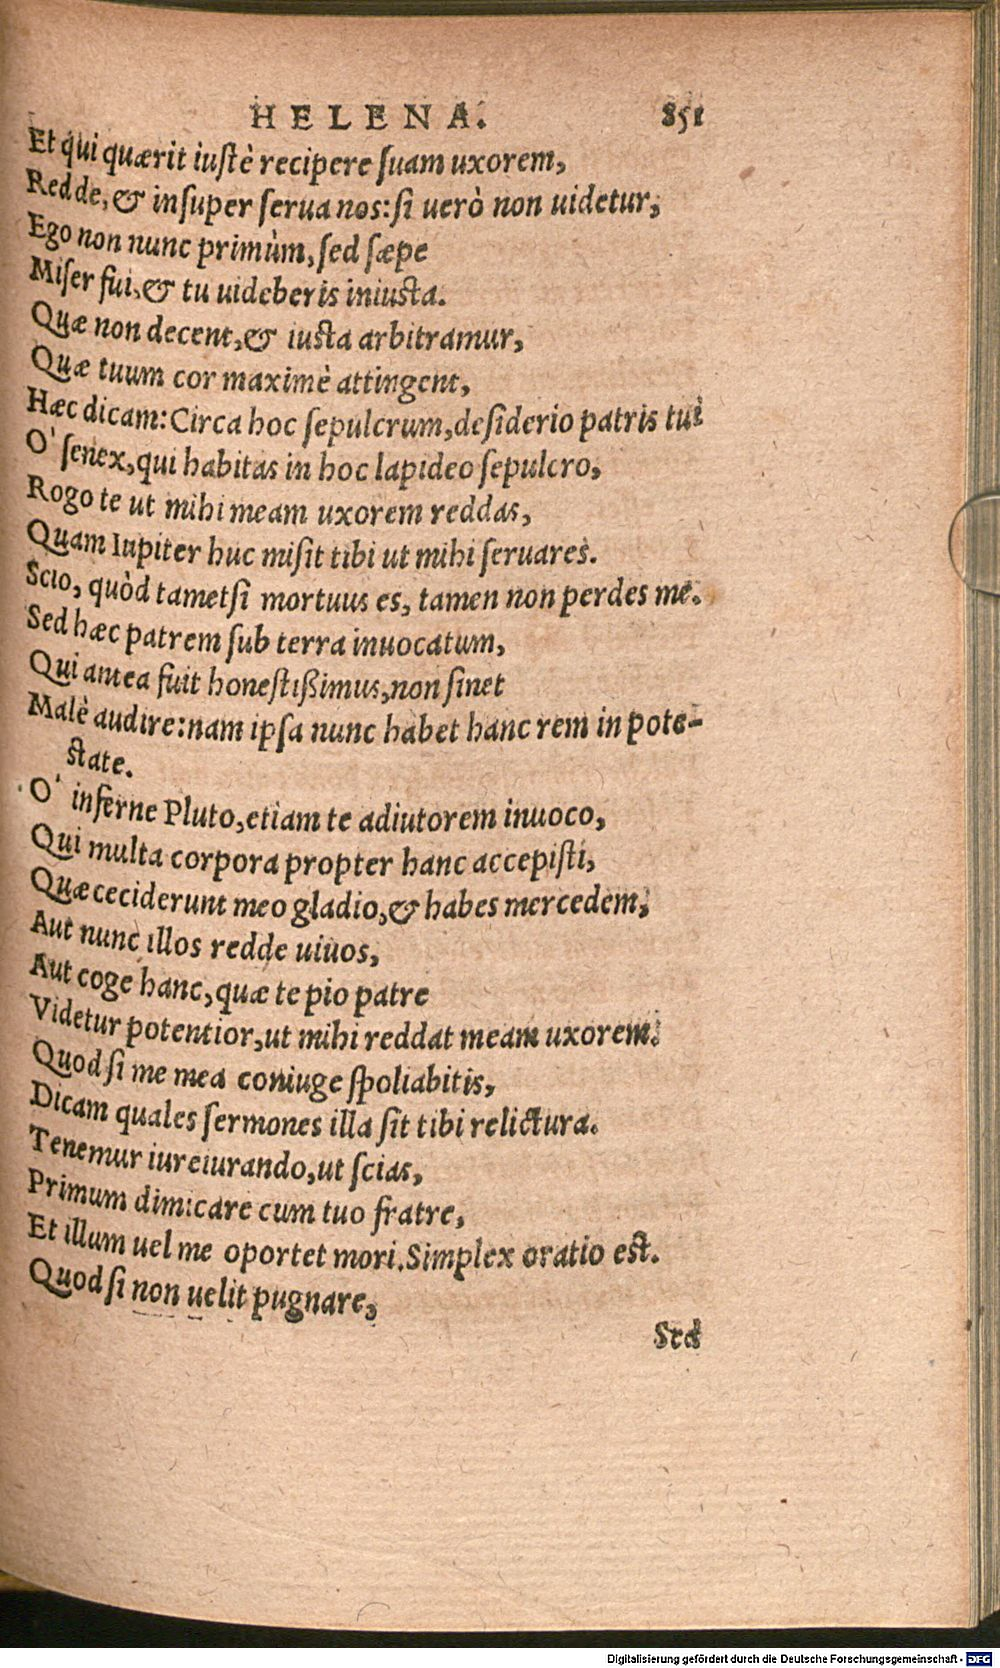 HELENA. 851
Et qui quærit iustè recipere suam uxorem,
Redde, & insuper serua nos: si uerò non uidetur,
Ego non nunc primùm, sed sæpe
Miser fui, & tu uideberis iniusta.
Quæ non decent, & iusta arbitramur,
Quæ tuum cor maximè attingent,
Hæc dicam: Circa hoc sepulcrum, desiderio patris tui
O' senex, qui habitas in hoc lapideo sepulcro,
Rogo te ut mihi meam uxorem reddas,
Quam Iupiter huc misit tibi ut mihi seruares.
Scio, quòd tametsi mortuus es, tamen non perdes me.
Sed hæc patrem sub terra inuocatum,
Qui antea fuit honestißimus, non sinet
Malè audire: nam ipsa nunc habet hanc rem in pote-
state.
O' inferne Pluto, etiam te adiutorem inuoco,
Qui multa corpora propter hanc accepisti,
Quæ ceciderunt meo gladio, & habes mercedem,
Aut nunc illos redde uiuos,
Aut coge hanc, quæ te pio patre
Videtur potentior, ut mihi reddat meam uxorem.
Quod si me mea coniuge spoliabitis,
Dicam quales sermones illa sit tibi relictura.
Tenemur iureiurando, ut scias,
Primum dimicare cum tuo fratre,
Et illum uel me oportet mori. Simplex oratio est.
Quod si non uelit pugnare,
Sed
Digitalisierung gefördert durch die Deutsche Forschungsgemeinschaft - DFG